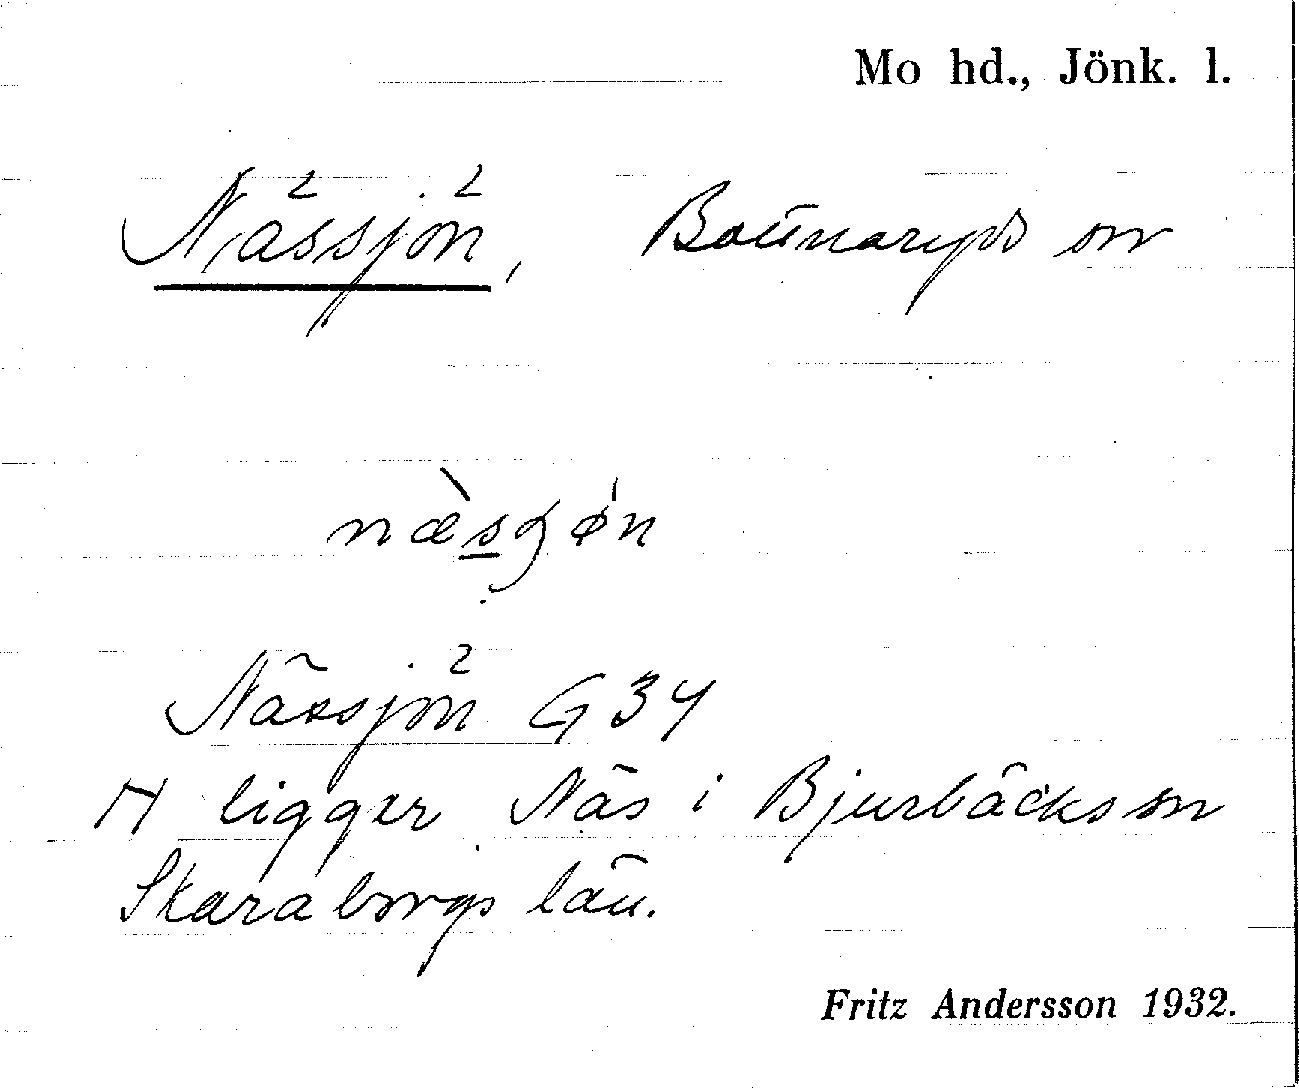 Mo hd., Jönk. l.
Nässjön, Bottnaryds sn
næ̀sʃøn
Nässjön G 34
H ligger Näs i Bjurbäcks sn
Skaraborgs län.
Fritz Andersson 1932.